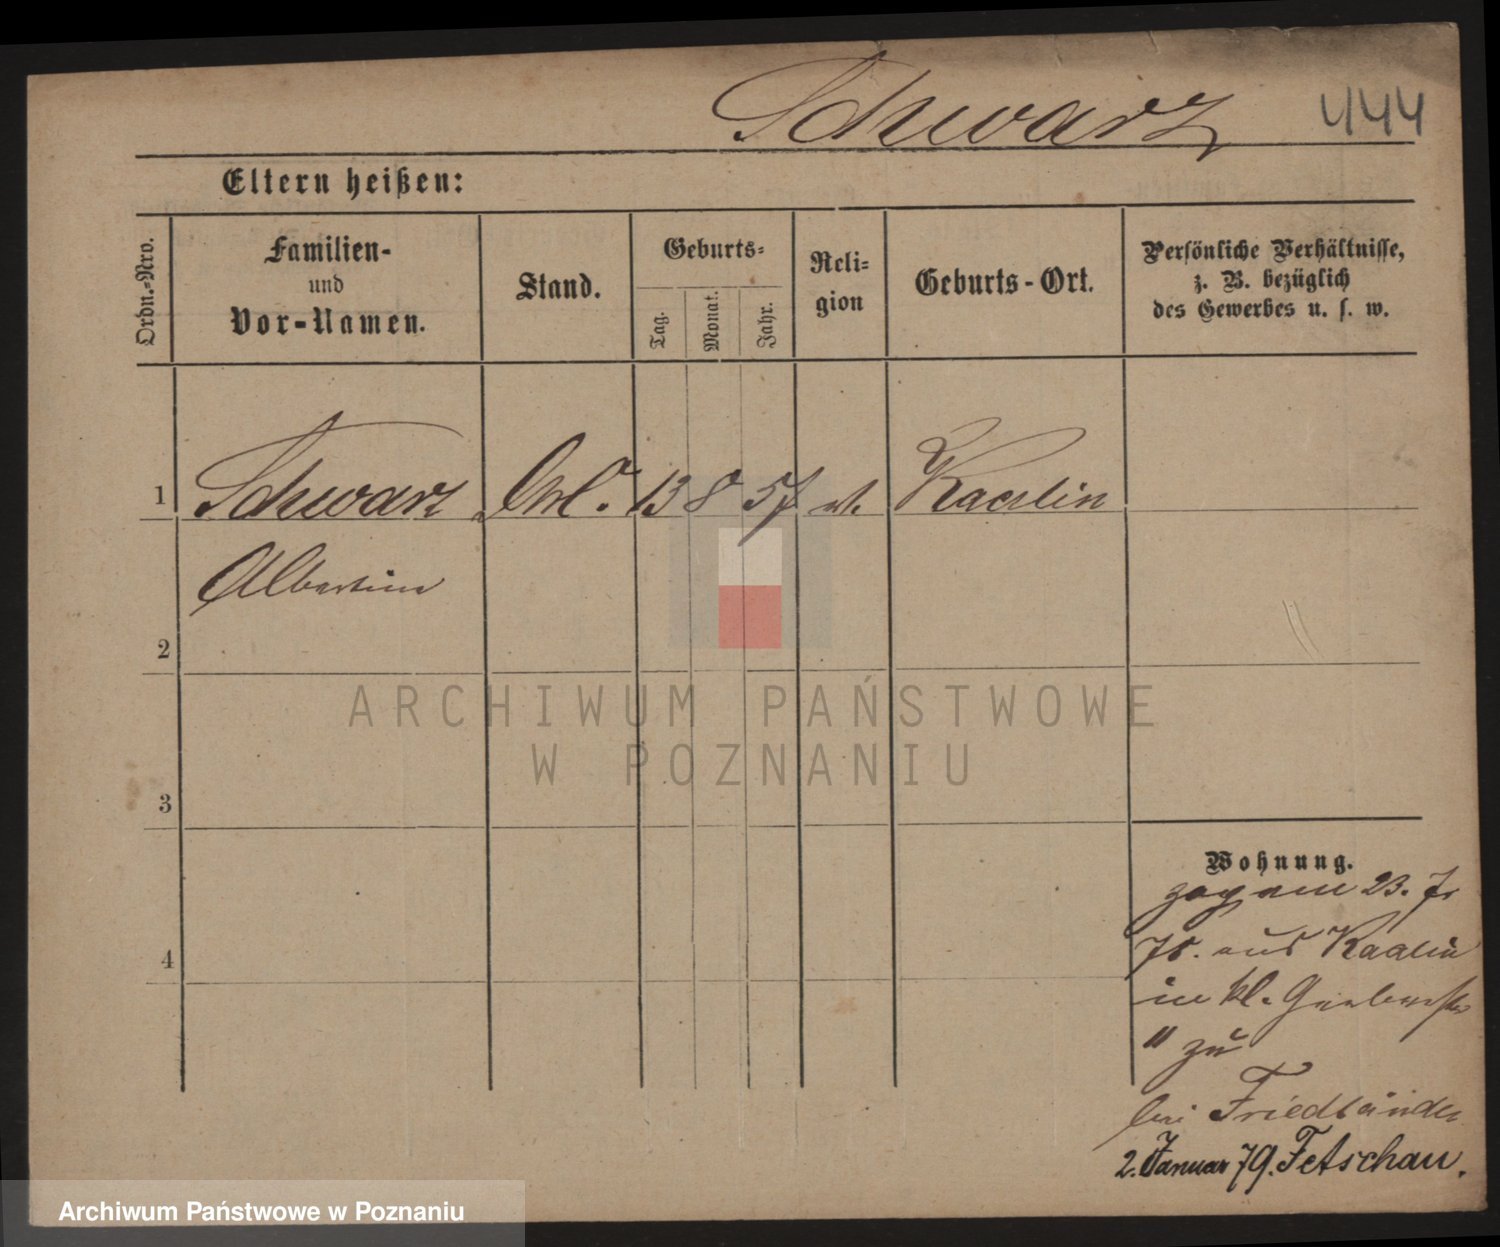 Schwarz 444
Eltern heißen:
Ordn.-Nro.
Familien-
und
Vor-Namen.
Stand.
Geburts-
Tag.
Monat.
Jahr.
Reli-
gion
Geburts-Ort.
Persönliche Verhältnisse,
z. B. bezüglich
des Gewerbes u. s. w.
1 Schwarz 13 8 57 Kaelin
Albertine
2
3
4
Wohnung.
zog am 23.
78. aus
in kl. Gerberstr
11 zu
bei Friedländer
2. Januar 79. Fetschau.
ARCHIWUM PAŃSTWOWE
W POZNANIU
Archiwum Państwowe w Poznaniu